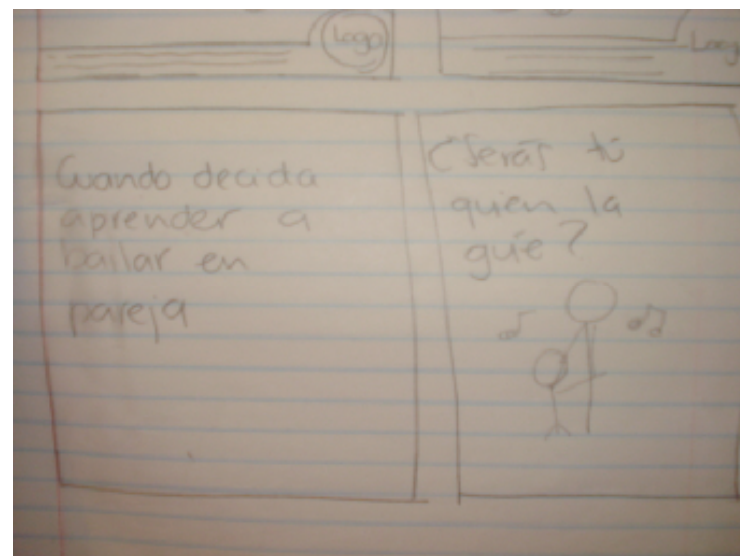 Logo
Logo
Cuando decida
aprender a
bailar en
pareja
¿Serás tú
quien la
guíe?